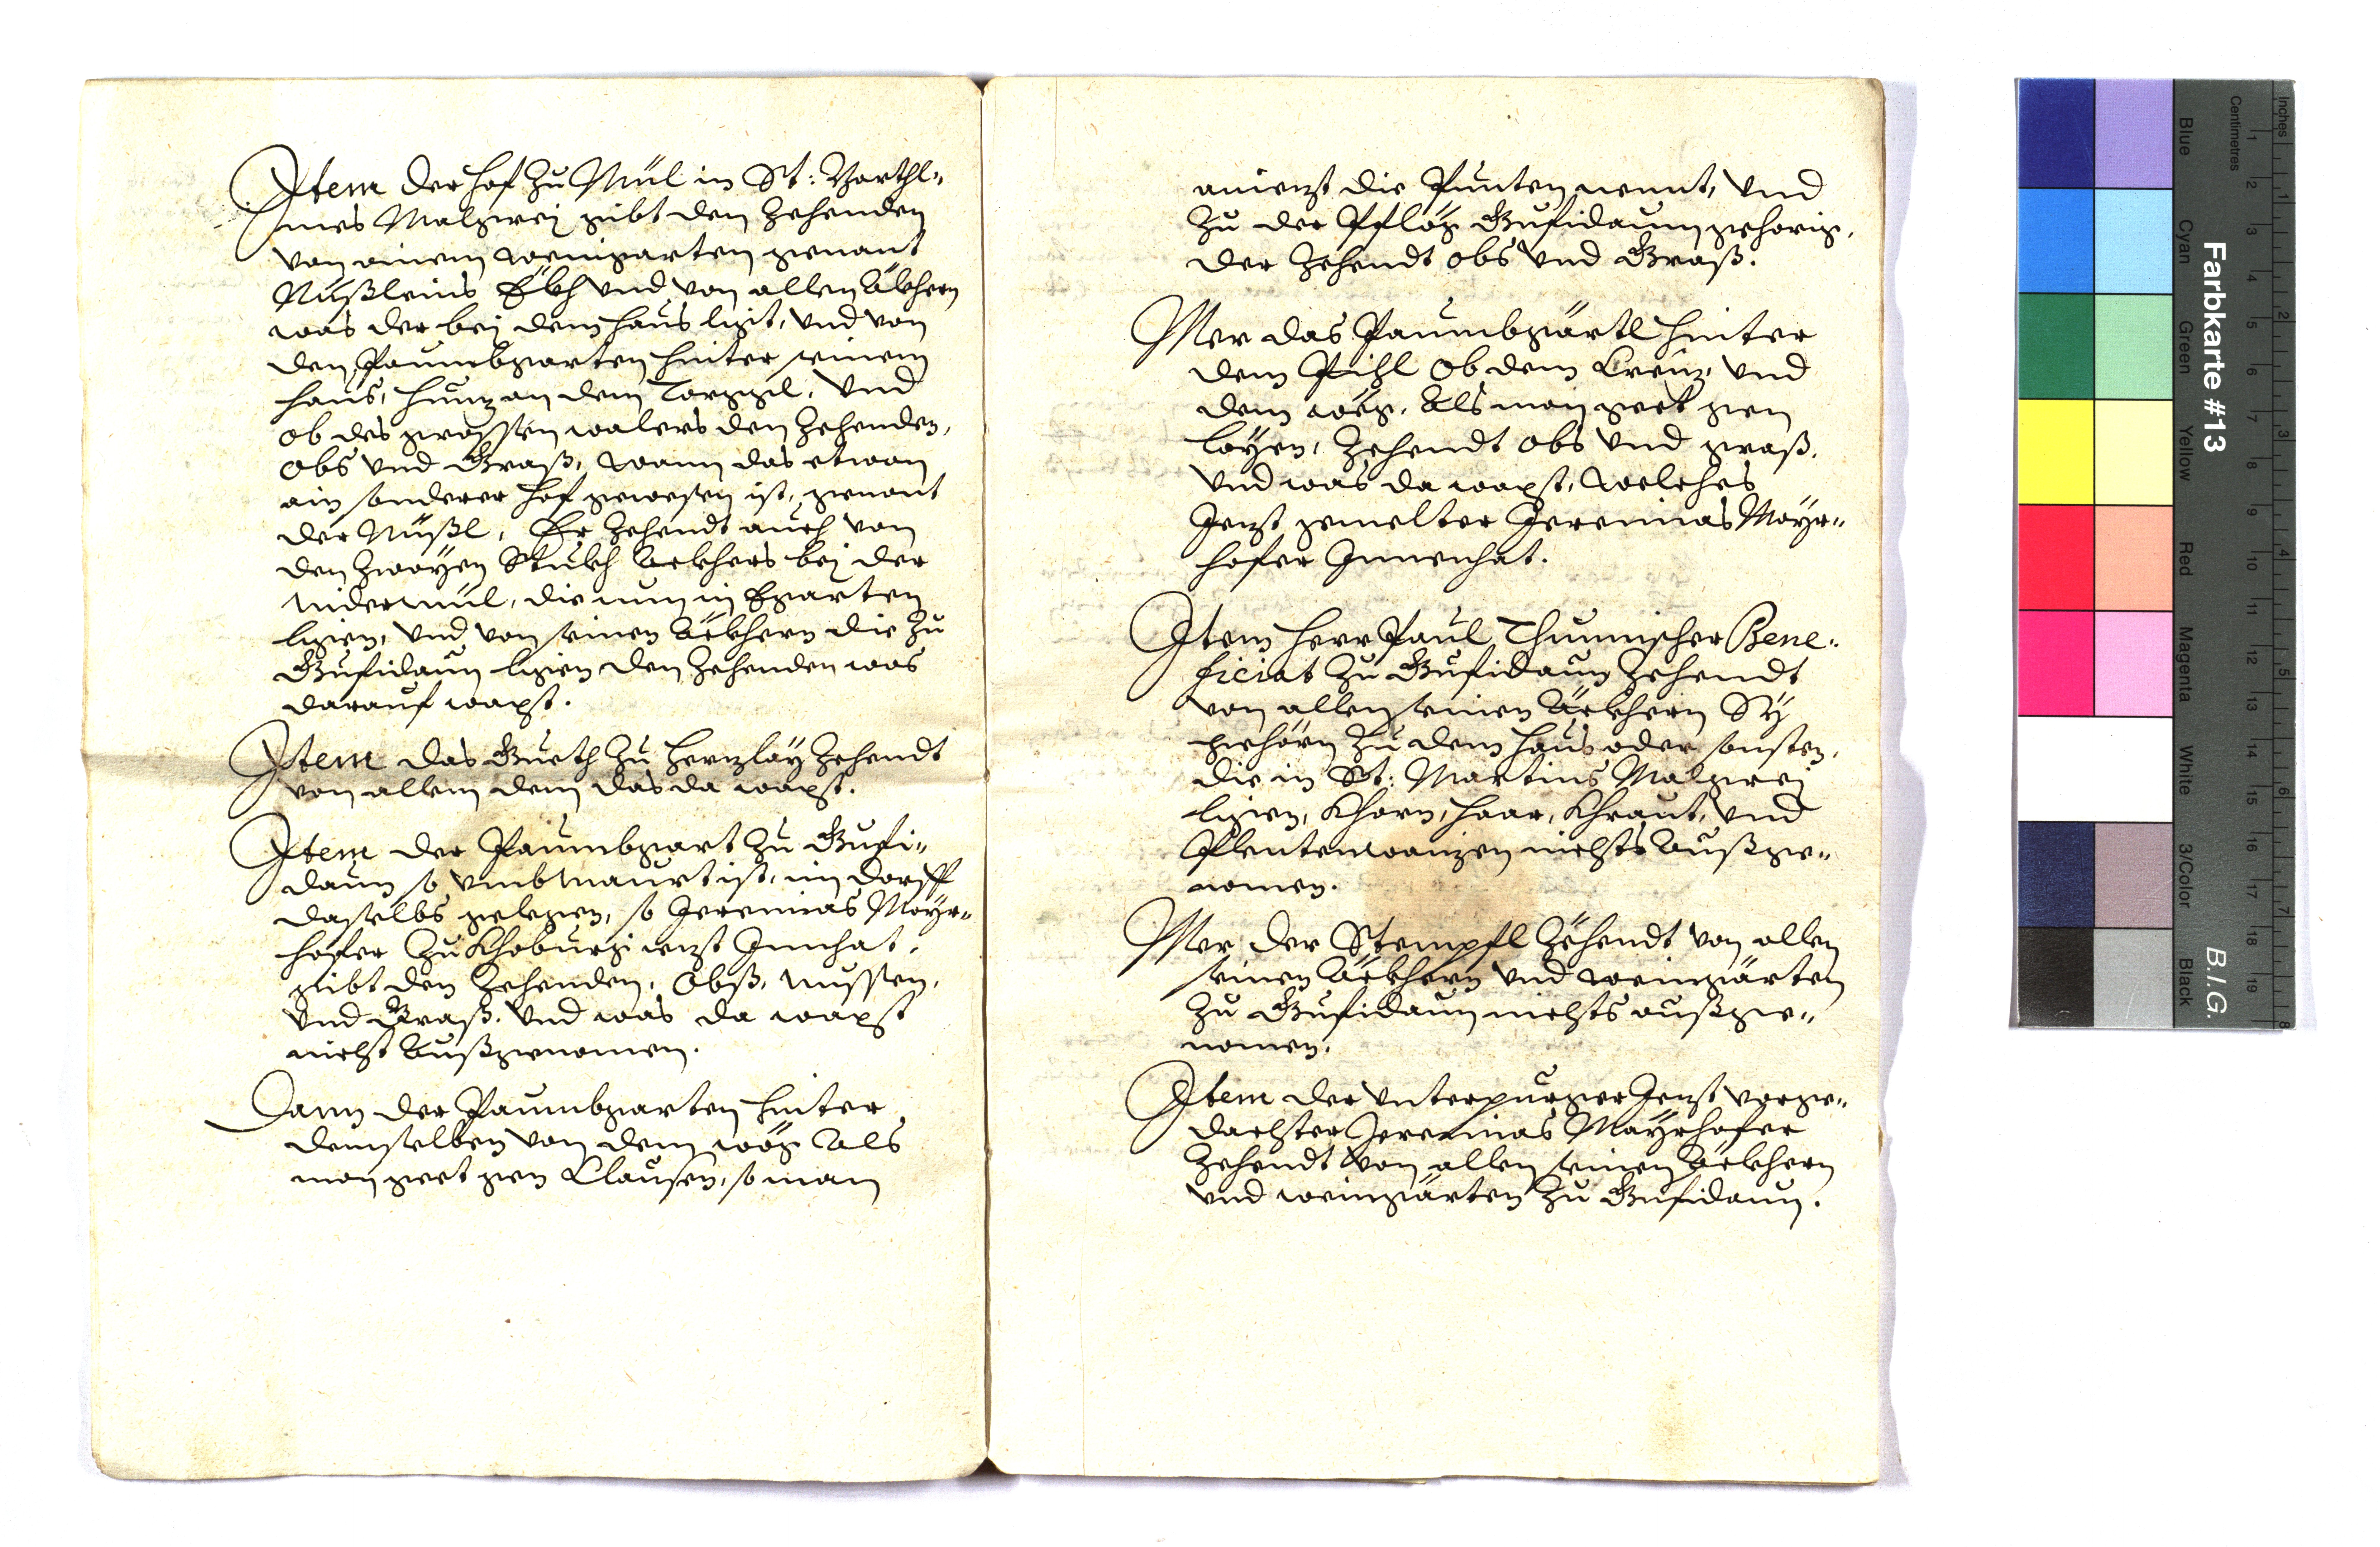 Item der hof zu Mül in St: Barthl-
mes Malgrej gibt den Zehenden
von ainem weingarten genant
Nüßleins Ekh und von allen Äkhern
was der bej dem haus ligt, und von
den Paumbgarten hinter seinem
haus, hinz an dem Torggl, Und
ob des grossen walers den Zehenden,
Obs und Graß, wann das etwan
ain sonderer hof gewesen ist, genant
der Nüßl, Er Zehendt auch von
den zwayen Stukh Ackhers bej der
Nidermül, die nun in Egarten
ligen, und von seinen Äckhern die zu
Gufidaun ligen den Zehenden was
darauf waxst.
Item das Gueth zu Herzlay Zehendt
von allem dem das da waxst.
Item der Paumbgart zu Gufi-
daun so umbmaurt ist, im dorff
daselbs gelegen, so Jeremias Mayr-
hofer zu Khoburg iezt Innhat,
gibt den Zehenden, Obß, nussen,
und Graß, Und was da waxst
nichst Außgenomen.
Dann der Paumbgarten hinter
demselben von dem wög Als
man geet gen Clausen, so man
anienzt die Punten nennt, Und
zu der Pflög Gufidaun gehorig,
der Zehendt obs und Graß.
Mer das Paumbgärtl hinter
dem Pihl Ob dem Creuz, Und
dem wög, Als man geet gen
layen, Zehendt obs und graß,
Und was da waxst, Welches
Jenzt gemelter Jeremias Mayr-
hofer Innenhat.
Item Herr Paul Thumischer Bene-
ficiat zu Gufidaun Zehendt
von allen seinen Äckhern Sÿ
gehörn zu dem haus oder sonsten,
die in St: Martins Malgrej
ligen, Khorn, haar, Khraut, und
Plentenwaizen nichts Außge-
nomen.
Mer der Stempfl Zehendt von allen
seinen Äckhern und weingärten
zu Gufidaun nichts außge-
nomen.
Item der Unterpurger Jenzt vorge-
dachster Jeremias Mayrhofer
Zehendt von allen seinen Äckhern
und weingärten zu Gufidaun.
Farbkarte #13
B.I.G.
Centimetres
Inches
Blue
Cyan
Green
Yellow
Red
Magenta
White
3/Color
Black
1 2 3 4 5 6 7 8 9 10 11 12 13 14 15 16 17 18 19
1 2 3 4 5 6 7 8